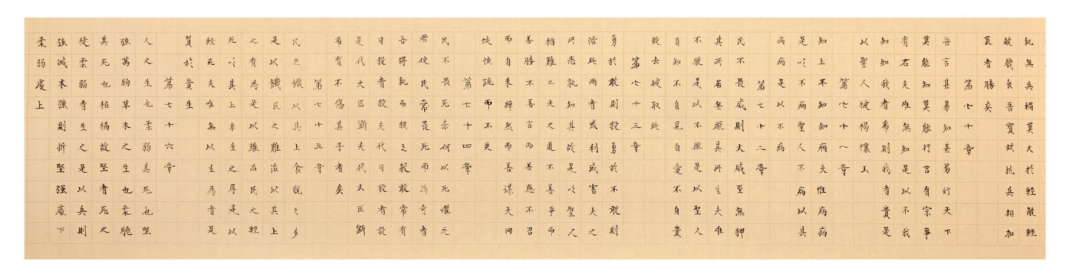 執無兵禍莫大於輕敵輕
敵幾喪吾寶故抗兵相加
哀者勝矣
第七十章
吾言甚易知甚易行天下
莫能知莫能行言有宗事
有君夫唯無知是以不我
知知我者希則我者貴是
以聖人被褐懷玉
第七十一章
知上不知知病夫惟病病
是以不病聖人不病以其
病病是以不病
第七十二章
民不畏威則大威至無狎
其所居無厭其所生夫唯
不厭是以不厭是以聖人
自知不自見自愛不自貴
故去彼取此
第七十三章
勇於敢則殺勇於不敢則
活此兩者或利或害天之
所惡孰知其故是以聖人
猶難之天之道不善爭而
善勝不善言而善應不召
而自來繟然而善謀天網
恢恢疏而不失
第七十四章
民不畏死奈何以死懼之
若使民常畏死而為奇者
吾得執而殺之孰敢常有
司殺者殺夫代司殺者殺
是代大匠斲夫代大匠斲
希有不傷其手者矣
第七十五章
民之饑以其上食稅之多
是以饑民之難治以其上
之有為是以難治民之輕
死以其上求生之厚是以
輕死夫唯無以生為者是
賢於貴生
第七十六章
人之生也柔弱其死也堅
強萬物草木之生也柔脆
其死也枯槁故堅強者死之
徒柔弱者生之徒是以兵則
強滅木強則折堅強處下
柔弱處上